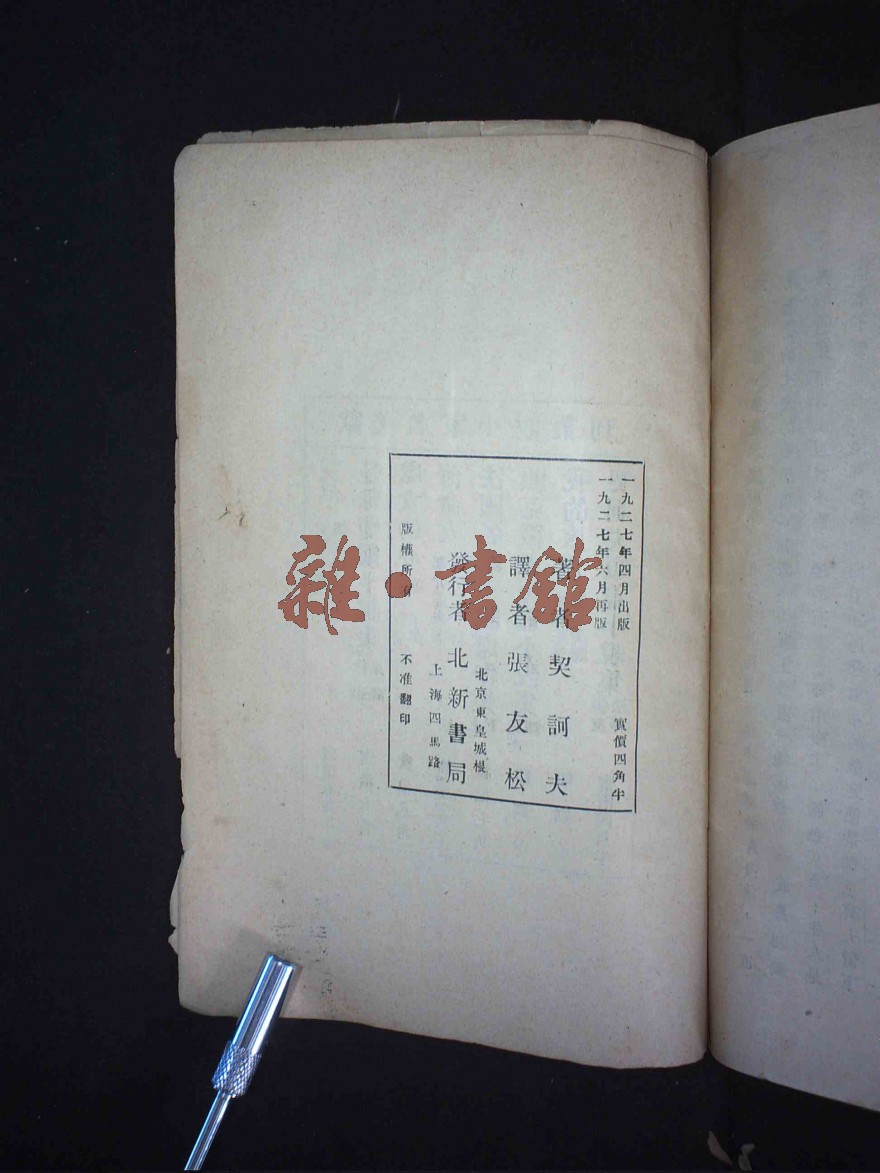 一九二七年四月出版
一九二七年六月再版
實價四角半
著者契訶夫
譯者張友松
北京東皇城根
發行者北新書局
上海四馬路
版權所有
不准翻印
雜·書館